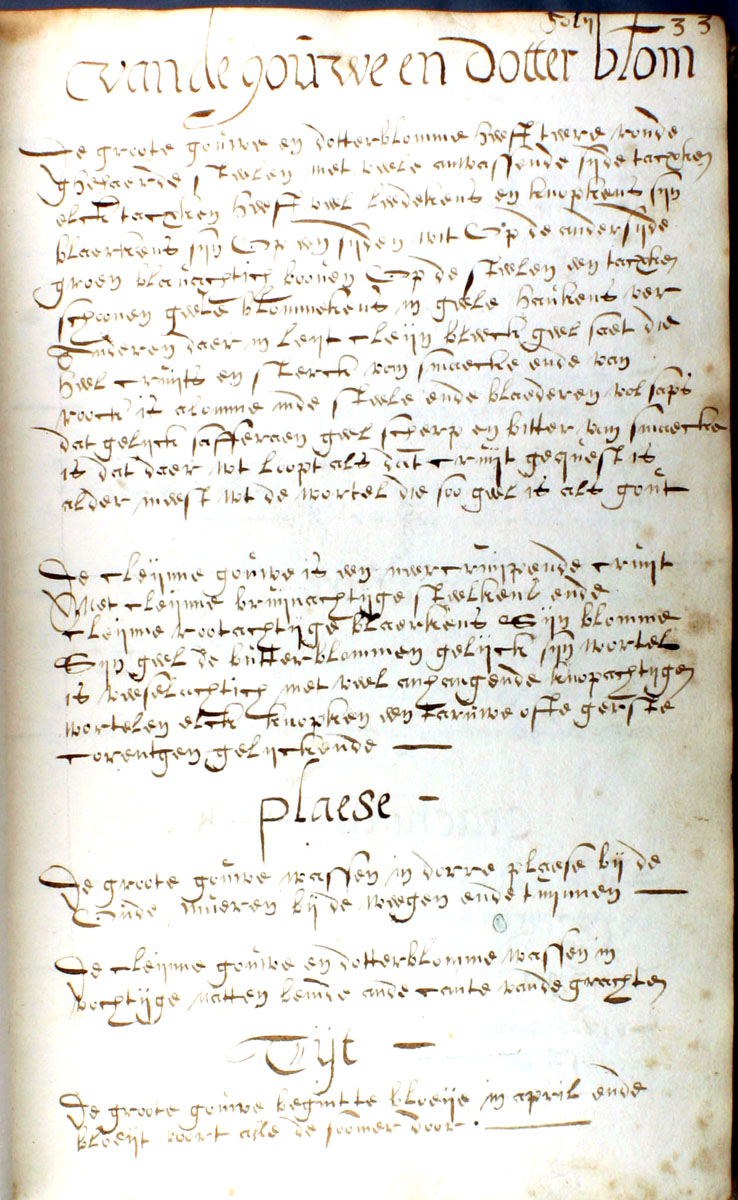 foly 33
van de goúwe en dotter blom
De groote goúwe en dotterblomme heeft teere ronde
ghehaerde steelen met veele anwassende sijde tacxken
elck tacxken heeft veel leedekens en knopkens sijn
blaerkens sijn op een sijden wit op de ander sijde
groen blaúachtich booven op de steelen een tacxken
schoonen geele blommekens in geele haúkens ver
anderen daer in leyt cleijn bleeck geel saet die
heel crúits en sterck van smaecke ende van
roock is alomme inde steele ende blaederen vol saps
dat gelijck safferaen geel scherp en bitter van smaecke
is dat daer wt loopt als dat crúijt gequest is
alder meest wt de wortel die soo geel is als goút
De cleijnne goúwe is een neercrúippende crúijt
Met cleijnne brúijnachtijge steelkens ende
cleijnne rootachtijge blaerkens Sijn blomme
Sijn geel de bútterblommen gelijck sijn wortel
is veeselachtich met veel anhangende knopachtijgen
wortelen elck knopken een tarúwe ofte gerste
corentgen gelijckende
plaese
De groote goúwe wassen in dorre plaese bij de
oúde múeren bij de weegen ende túijnnen
De cleijnne goúwe en dotterblomme wassen in
vochtijge natten beemde ande cante vande grachten
Tijt
De groote goúwe begint te bloeije in april ende
bloeijt voort alle de soomer door .